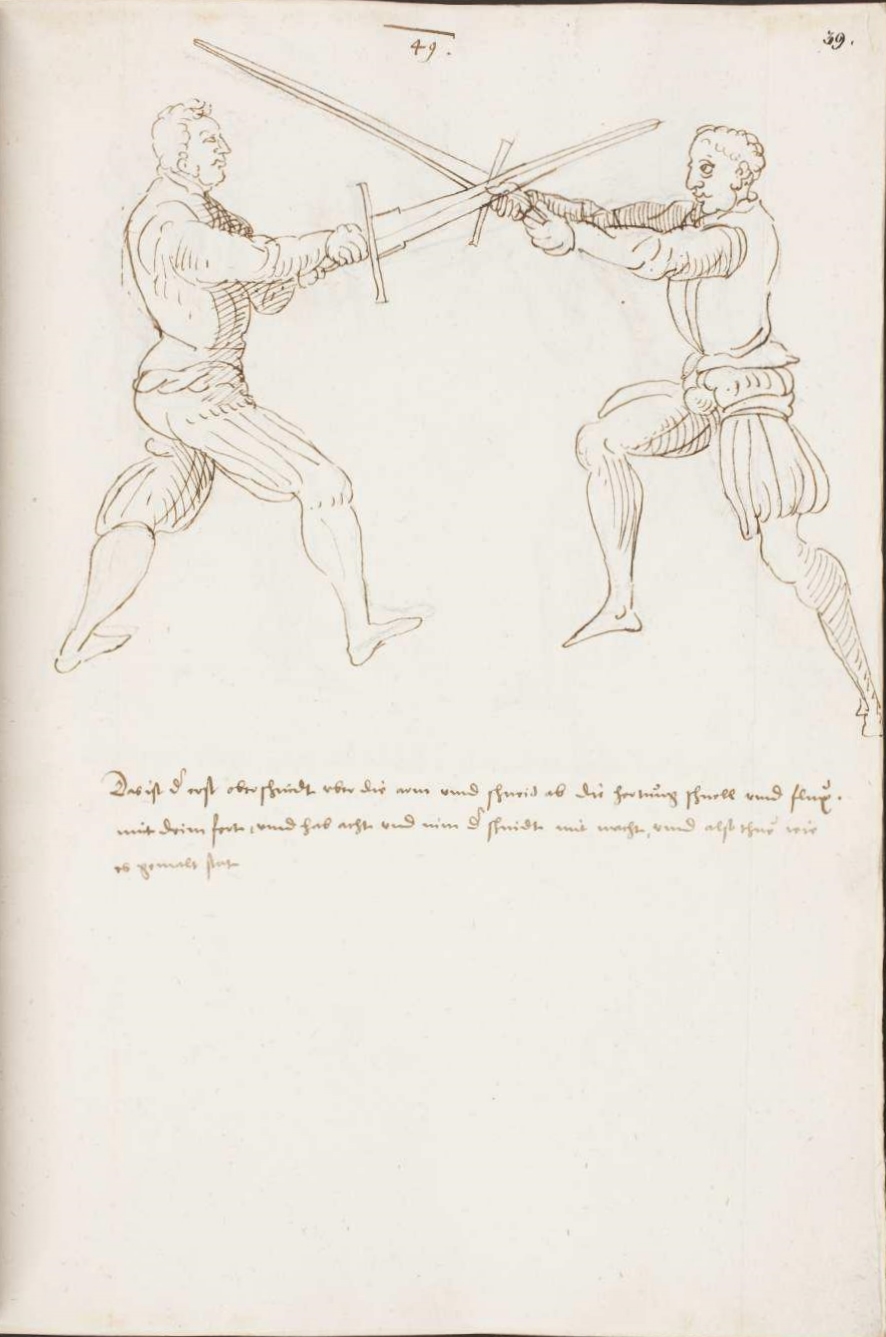 49.
39.
Das ist d̕ erst ober schnidt vber die arm vnnd schneid ab die hertung schnell vnnd flux.
mit deim fort, vnnd hab acht vnd nim d̕ schnidt mit macht, vnnd also thue wie
es gemalt stat